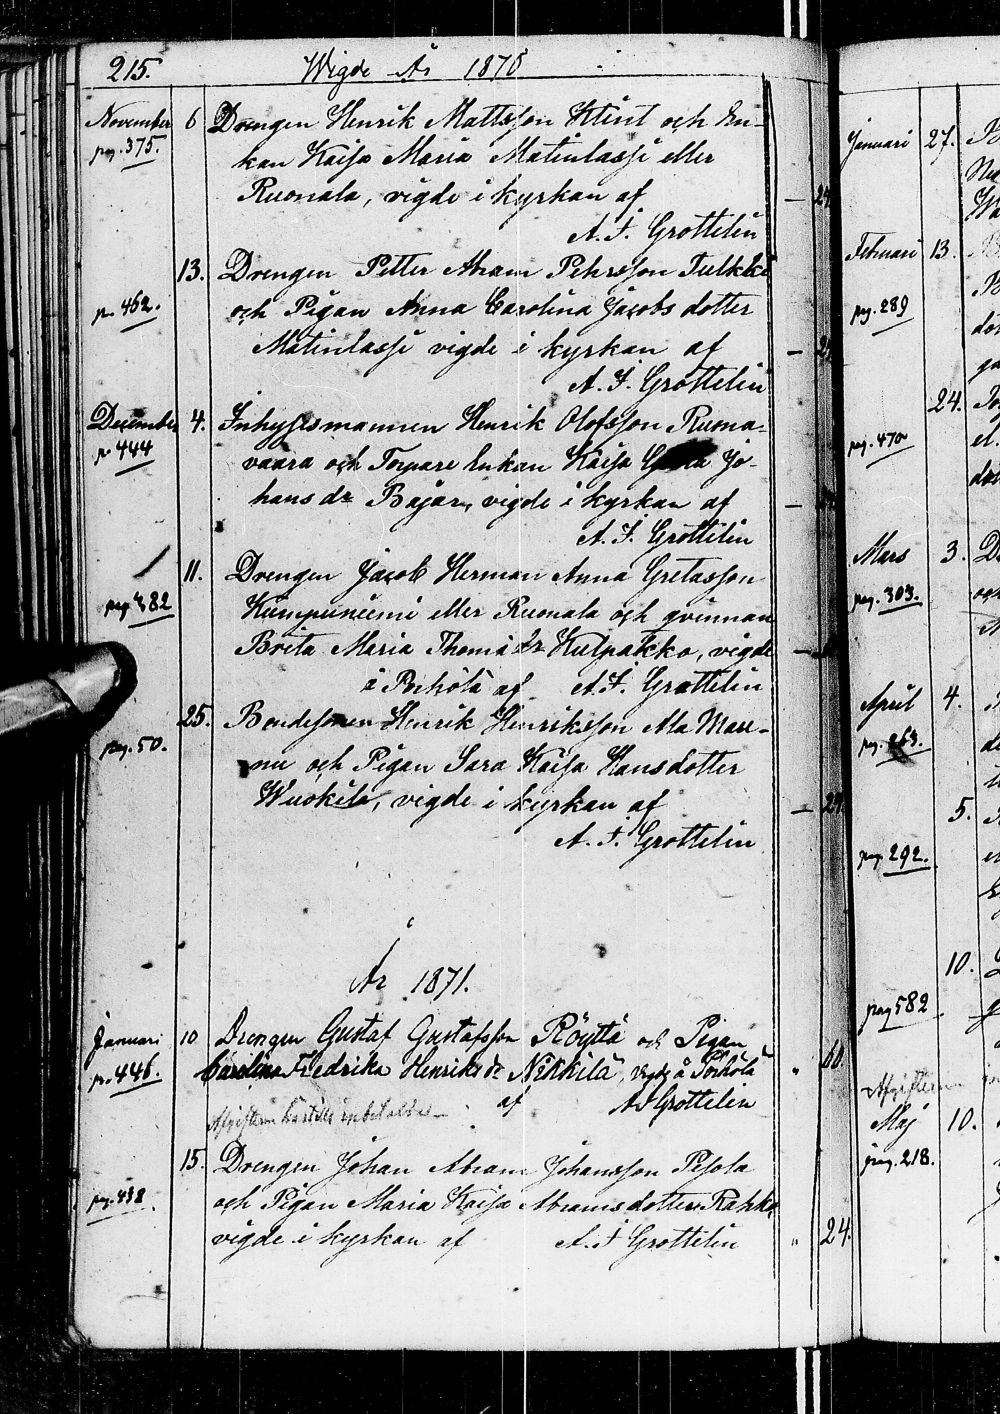 215. Wigde År 1870
November 6 Drengen Henrik Mattsson Klint och En-
pag. 375. kan Kaisa Maria Matinlassi eller
Ruonala, vigde i kyrkan af
— 24
A. F. Grottelin
13. Drengen Petter Abram Pehrsson Tulkki
p. 462. och Pigan Anna Carolina Jacobsdotter
Matinlassi vigde i kyrkan af
— 24
A. F. Grottelin
December 4. Inhysesmannen Henrik Olofsson Ruona-
p. 444 vaara och Torpare Enkan Kaisa Jo-
hans dr Bajar, vigde i kyrkan af
A. F. Grottelin
11. Drengen Jacob Herman Anna Gretasson
pag. 382 Kumpuniemi eller Ruonala och qvinnan
Brita Maria Thomä dr Kulpakko, vigde
i Pörhölä af A. F. Grottelin
25. Bondesonen Henrik Henriksson Ala Mau-
pag. 50. nu och Pigan Sara Kaisa Hansdotter
Wuokila, vigde i kyrkan af
— 24
A. F. Grottelin
År 1871.
Januari 10 Drengen Gustaf Gustafsson Röyttä och Pigan
p. 446. Carolina Fredrika Henriks dr Nikkilä, vigde å Pörhölä
" 60.
af A F Grottelin
Afgiften
15. Drengen Johan Abram Johansson Pesola
pag. 438 och Pigan Maria Kaisa Abramsdotter Rahko
vigde i kyrkan af A. F Grottelin
" 24.
Januari 27.
Februari 13.
pag. 289
24.
pag. 470
Mars 3.
pag. 303.
April 4.
pag. 263.
5.
pag. 292.
10.
pag 582
Afgiften
Maj 10.
pag. 218.